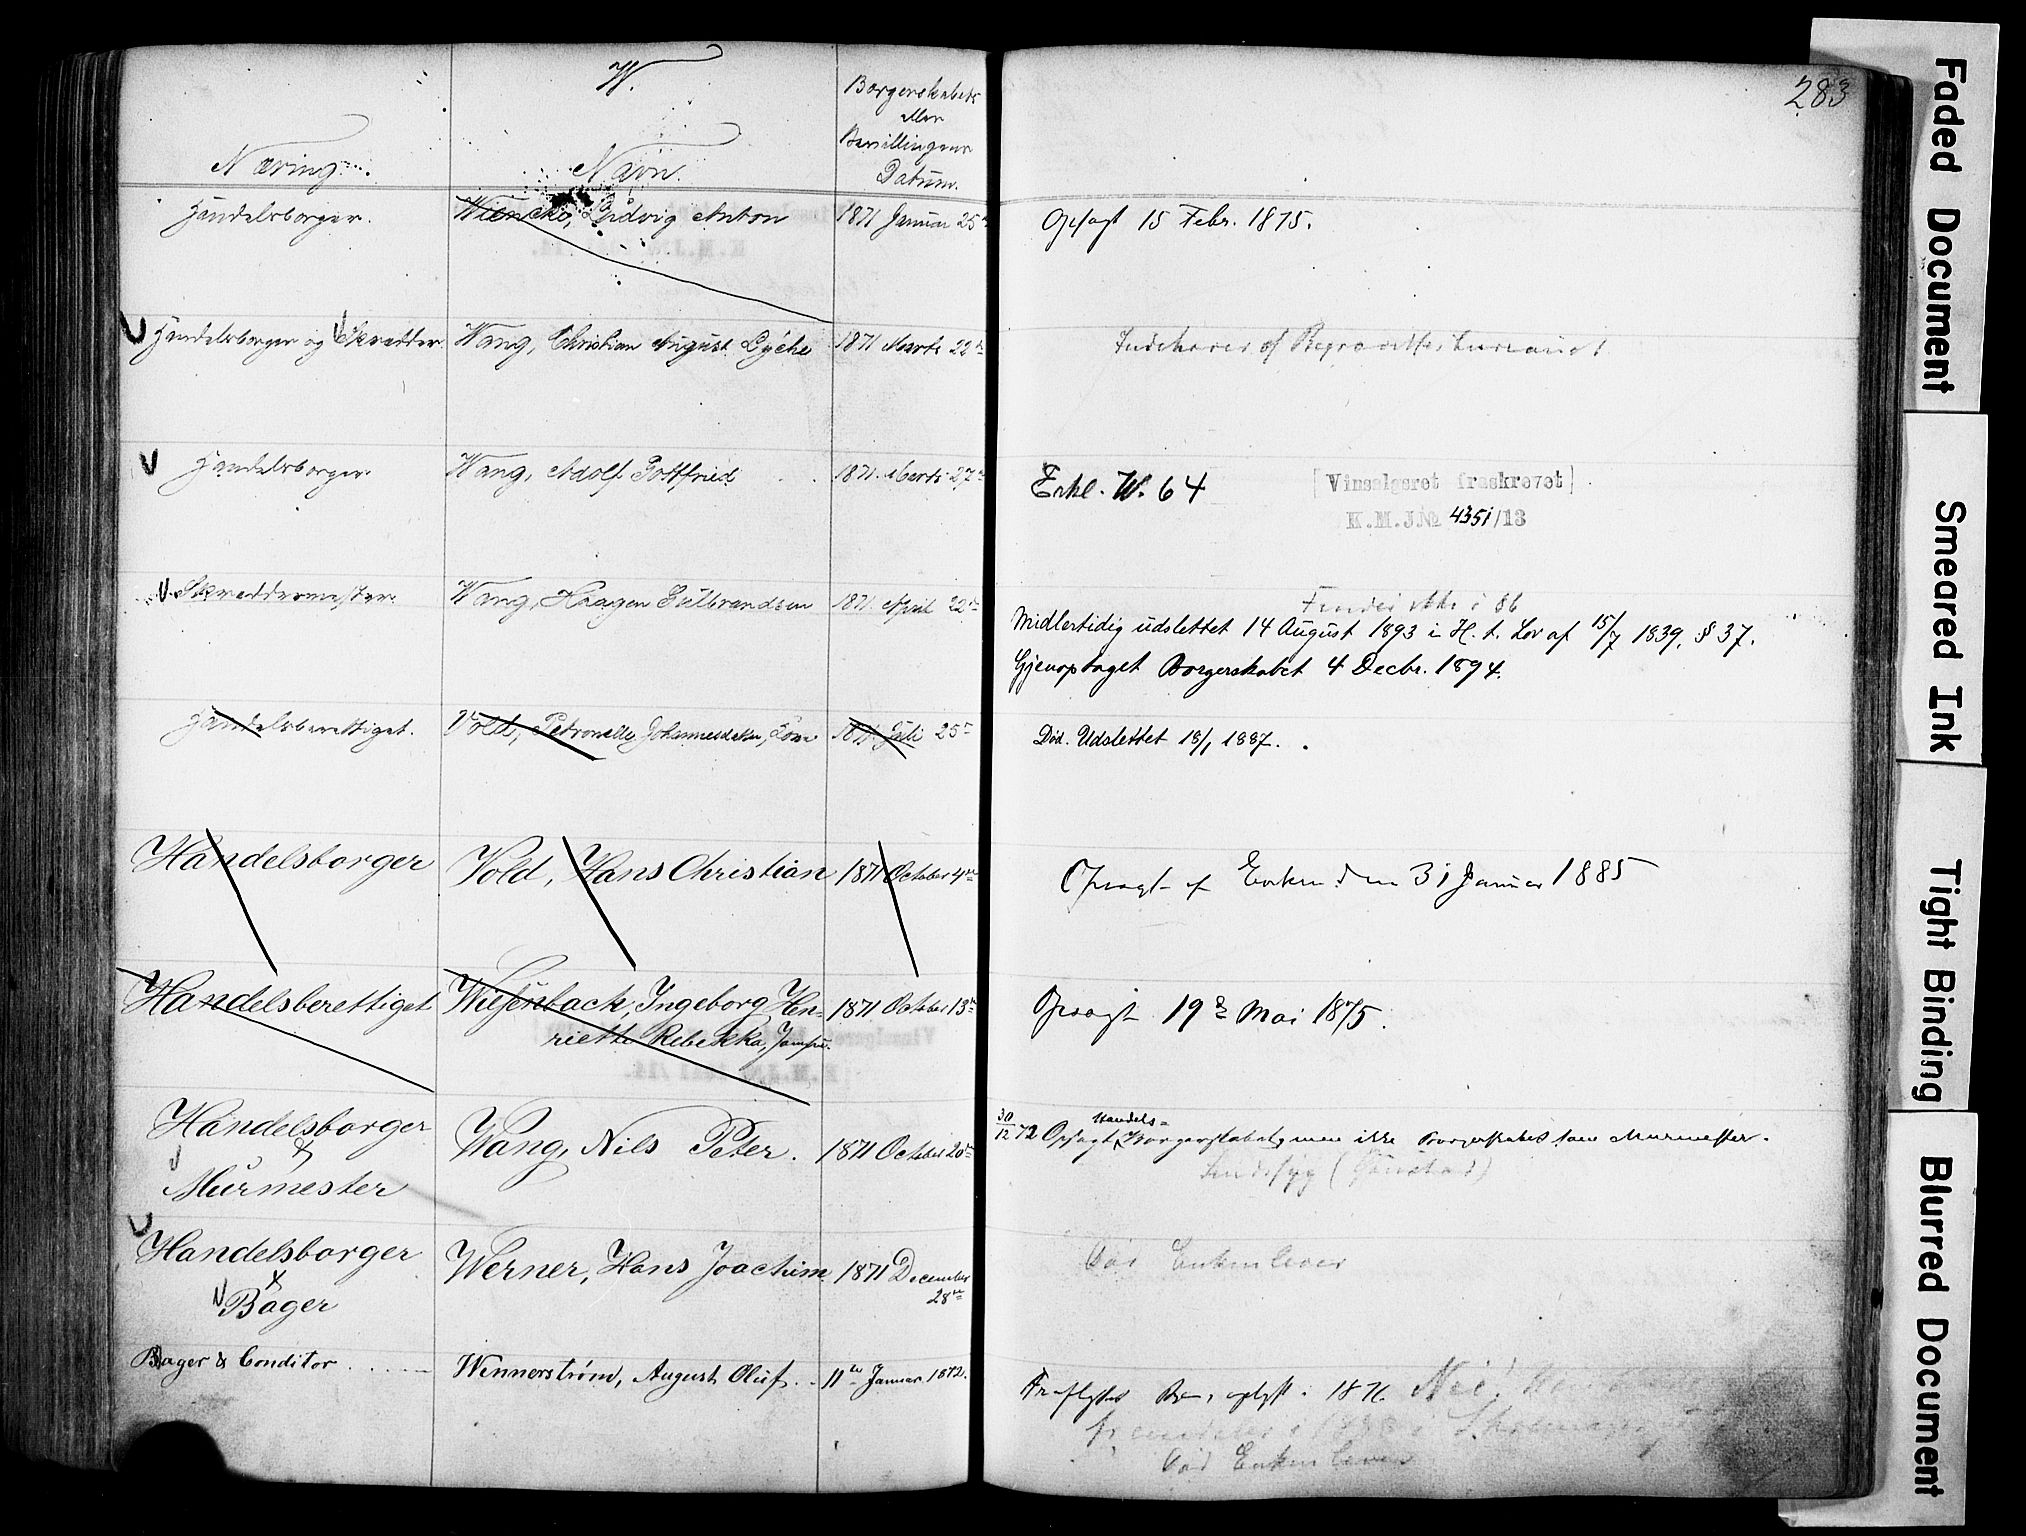 W.
283
Næring
Navn.
Borgerskabets
eller
Bevillingens
Datum.
Handelsborger.
Wiencke, Ludvig Anton
1871 Januar 25
Opsagt 15 Febr. 1875.
Handelsborger og Skrædder
Wang, Christian August Lyche
1871 Marts 22
Indehaver af Begravelsesbureauet
Handelsborger
Wang, Adolf Gottfried
1871 Marts 27
Erkl. W. 64
Vinsalgsret fraskrevet
K.M.J.№ 4351/13
Skræddermester
Wang, Haagen Gulbrandsen
1871 April 22
Findes ikke i 86
Midlertidig udslettet 14 August 1893 i H. t. Lov af 15/7 1839, § 37.
Gjenoptaget Borgerskabet 4 Decbr. 1894.
Handelsberettiget.
Vold, Petronelle Johannesdatter,
1871 Juli 25
Død. Udslettet 18/1 1887.
Handelsborger
Vold, Hans Christian
1871 October 4
Opsagt af Enken den 31 Januar 1885
Handelsberettiget
Wiesenback, Ingeborg Hen-
riette Rebekka, Jomfru.
1871 October 13
Opsagt 19 Mai 1875.
Handelsborger
&
Murmester
Wang, Nils Peter.
1871 October 20
30/12 72 Opsagt Handels-Borgerskabet, men ikke Borgerskabet som Murmester.
Sindssyg (Gaustad)
Handelsborger
&
Bager
Werner, Hans Joachim
1871 December
28
Død Enken lever
Bager & Conditor
Wennerstrøm, August Oluf
11 Januar 1872.
Fraflyttet Byen, oplyst i 1876. Nei!
fremdeles i 1888 i
Død Enken lever
Faded Document
Smeared Ink
Tight Binding
Blurred Document